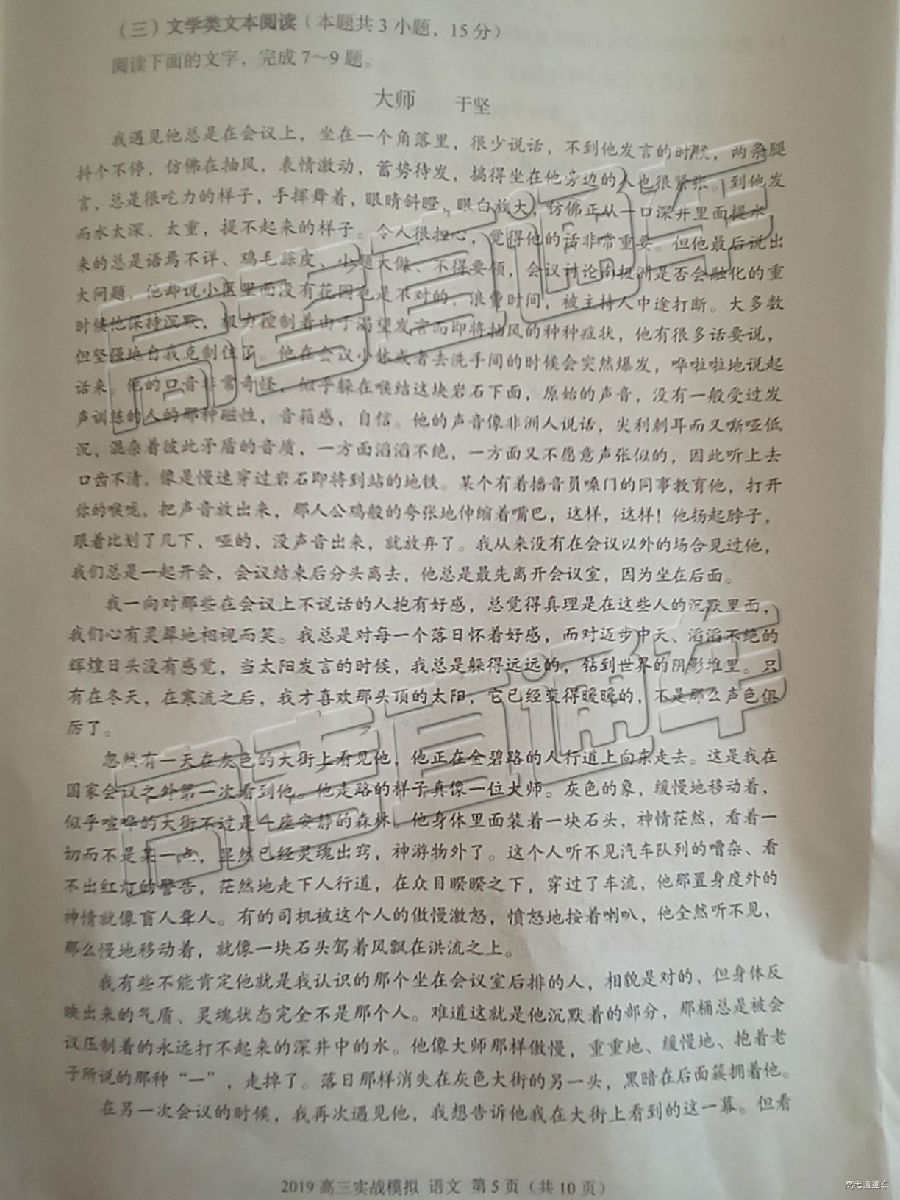 （三）文学类文本阅读（本题共3小题，15分）
阅读下面的文字，完成7～9题。
大师 于坚
我遇见他总是在会议上，坐在一个角落里，很少说话，不到他发言的时候，两条腿
抖个不停，仿佛在抽风，表情激动，蓄势待发，搞得坐在他旁边的人也很紧张。到他发
言，总是很吃力的样子，手挥舞着，眼睛斜瞪，眼白放大，仿佛正从一口深井里面提水，
而水太深、太重，提不起来的样子。令人很担心，觉得他的话非常重要。但他最后说出
来的总是语焉不详、鸡毛蒜皮、小题大做、不得要领，会议讨论南极洲是否会融化的重
大问题，他却说小区里面没有花园也是不对的，浪费时间，被主持人中途打断。大多数
时候他保持沉默，极力控制着由于渴望发言而即将抽风的种种症状，他有很多话要说，
但坚强地自我克制住了。他在会议小休或者去洗手间的时候会突然爆发，哗啦啦地说起
话来。他的口音非常奇怪，似乎躲在喉结这块岩石下面，原始的声音，没有一般受过发
声训练的人的那种磁性，音箱感，自信。他的声音像非洲人说话，尖利刺耳而又嘶哑低
沉，混杂着彼此矛盾的音质，一方面滔滔不绝，一方面又不愿意声张似的，因此听上去
口齿不清，像是慢速穿过岩石即将到站的地铁。某个有着播音员嗓门的同事教育他，打开
你的喉咙，把声音放出来，那人公鸡般的夸张地伸缩着嘴巴，这样，这样！他扬起脖子，
跟着比划了几下，哑的，没声音出来，就放弃了。我从来没有在会议以外的场合见过他，
我们总是一起开会，会议结束后分头离去，他总是最先离开会议室，因为坐在后面。
我一向对那些在会议上不说话的人抱有好感，总觉得真理是在这些人的沉默里面，
我们心有灵犀地相视而笑。我总是对每一个落日怀着好感，而对迈步中天、滔滔不绝的
辉煌日头没有感觉，当太阳发言的时候，我总是躲得远远的，钻到世界的阴影堆里。只
有在冬天，在寒流之后，我才喜欢那头顶的太阳，它已经变得暖暖的，不是那么声色俱
厉了。
忽然有一天在灰色的大街上看见他，他正在金碧路的人行道上向东走去。这是我在
国家会议之外第一次看到他。他走路的样子真像一位大师。灰色的象，缓慢地移动着，
似乎喧哗的大街不过是一座安静的森林。他身体里面装着一块石头，神情茫然，看着一
切而不是某一点，显然已经灵魂出窍，神游物外了。这个人听不见汽车队列的嘈杂、看
不出红灯的警告，茫然地走下人行道，在众目睽睽之下，穿过了车流，他那置身度外的
神情就像盲人聋人。有的司机被这个人的傲慢激怒，愤怒地按着喇叭，他全然听不见，
那么慢地移动着，就像一块石头驾着风飘在洪流之上。
我有些不能肯定他就是我认识的那个坐在会议室后排的人，相貌是对的，但身体反
映出来的气质、灵魂状态完全不是那个人。难道这就是他沉默着的部分，那桶总是被会
议压制着的永远打不起来的深井中的水。他像大师那样傲慢，重重地、缓慢地、抱着老
子所说的那种“一”，走掉了。落日那样消失在灰色大街的另一头，黑暗在后面簇拥着他。
在另一次会议的时候，我再次遇见他，我想告诉他我在大街上看到的这一幕。但看
2019高三实战模拟 语文 第5页（共10页）
高考直通车
高考直通车
高考直通车